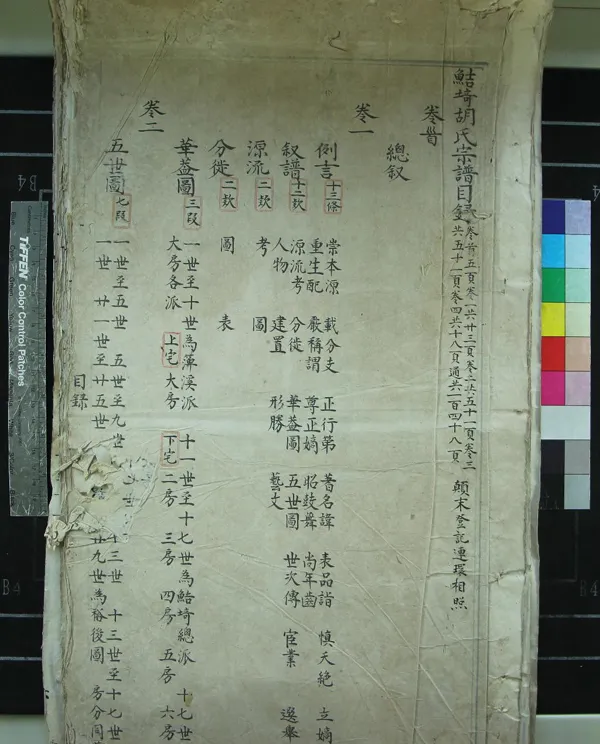 鮚埼胡氏宗譜目錄 卷首五頁卷一共廿三頁卷二共五十一頁卷三共五十一頁卷四共十八頁通共一百四十八頁 顛末登記連環相照
卷首
總叙
卷一
例言 十三條 崇本源 載分支 正行第 著名諱 表品詣 慎天絶 立嫡
重生配 嚴稱謂 尊正嫡 昭鼓舞 尚年齒
叙譜 十二欵 源流考 分徙 華蓋圖 五世圖 世次傳 宦業 選舉
人物 建置 形勝 藝文
源流 二欵 考 圖
分徙 二欵 圖 表
華蓋圖 三段 一世至十世為 溪派 十一世至十七世為鮚埼總派 十七世
大房各派 上宅 大房 下宅 二房 三房 四房 五房 六房
卷二
五世圖 七段 一世至五世 五世至九世 十三世 十三世至十七世
一世 廿一世至廿五世 廿九世為裕後圖 房分同
目錄
TIFFEN Color Control Patches
B4
B4
B4
B4